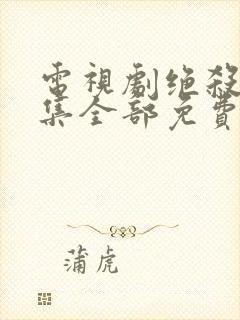 電視劇绝殺
集全部免費
蒲虎